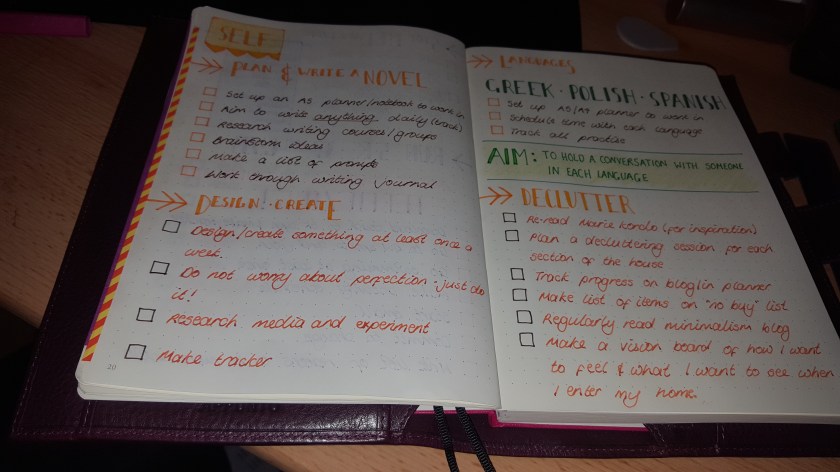 SELF
PLAN & WRITE A NOVEL
Set up an A5 planner/notebook to work in
Aim to write anything daily (track)
Research writing courses/groups
Brainstorm ideas
Make a list of prompts
Work through writing journal
DESIGN · CREATE
Design/create something at least once a
week.
Do not worry about perfection - just do
it!
Research media and experiment
Make tracker
20
LANGUAGES
GREEK · POLISH · SPANISH
Set up A5/A4 planner to work in
Schedule time with each language
Track all practise
AIM: TO HOLD A CONVERSATION WITH SOMEONE
IN EACH LANGUAGE
DECLUTTER
Re-read Marie Kondo (for inspiration)
Plan a decluttering session for each
section of the house
Track progress on blog/in planner
Make list of items on "no buy" list
Regularly read minimalism blog
Make a vision board of how I want
to feel & what I want to see when
I enter my home.